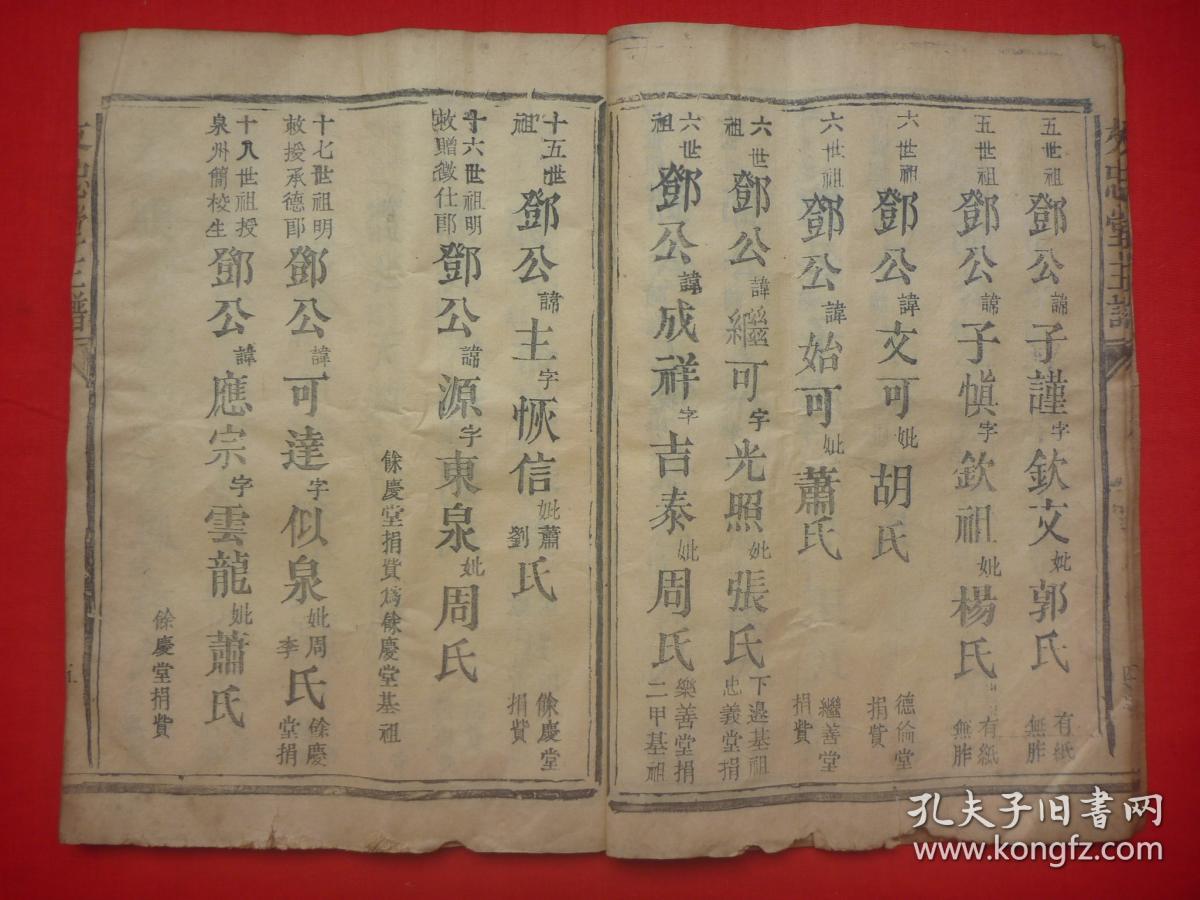 五世祖鄧公諱子謹字欽文妣郭氏有紙無胙
五世祖鄧公諱子慎字欽祖妣楊氏有紙無胙
六世祖鄧公諱文可妣胡氏德倫堂捐貲
六世祖鄧公諱始可妣蕭氏繼善堂捐貲
六世祖鄧公諱繼可字光照妣張氏下邊基祖忠義堂捐
六世祖鄧公諱成祥字吉泰妣周氏樂善堂捐二甲基祖
十五世祖鄧公諱主字恢信妣蕭劉氏餘慶堂捐貲
十六世祖明敕贈徵仕郎鄧公諱源字東泉妣周氏
餘慶堂捐貲為餘慶堂基祖
十七世祖明敕授承德郎鄧公諱可達字似泉妣周李氏餘慶堂捐
十八世祖授泉州簡校生鄧公諱應宗字雲龍妣蕭氏
餘慶堂捐貲
忠堂主譜
五
孔夫子旧书网
www.kongfz.com